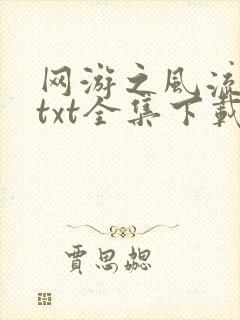 网游之风流
txt全集下载
贾思勰